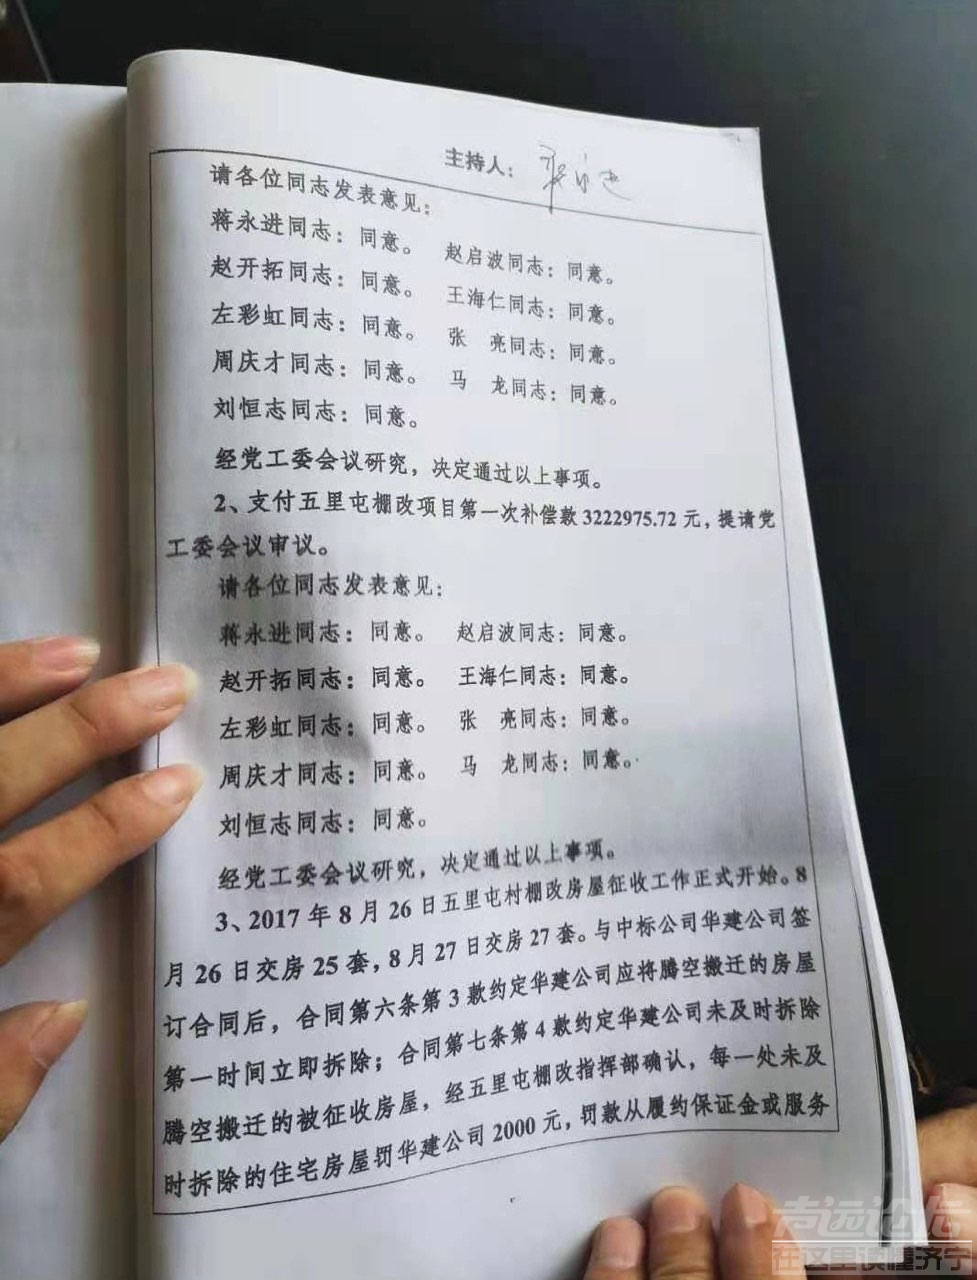 主持人：
请各位同志发表意见：
蒋永进同志：同意。 赵启波同志：同意。
赵开拓同志：同意。 王海仁同志：同意。
左彩虹同志：同意。 张　亮同志：同意。
周庆才同志：同意。 马　龙同志：同意。
刘恒志同志：同意。
经党工委会议研究，决定通过以上事项。
2、支付五里屯棚改项目第一次补偿款3222975.72元，提请党
工委会议审议。
请各位同志发表意见：
蒋永进同志：同意。 赵启波同志：同意。
赵开拓同志：同意。 王海仁同志：同意。
左彩虹同志：同意。 张　亮同志：同意。
周庆才同志：同意。 马　龙同志：同意。
刘恒志同志：同意。
经党工委会议研究，决定通过以上事项。
3、2017年8月26日五里屯村棚改房屋征收工作正式开始。8
月26日交房25套，8月27日交房27套。与中标公司华建公司签
订合同后，合同第六条第3款约定华建公司应将腾空搬迁的房屋
第一时间立即拆除；合同第七条第4款约定华建公司未及时拆除
腾空搬迁的被征收房屋，经五里屯棚改指挥部确认，每一处未及
时拆除的住宅房屋罚华建公司2000元，罚款从履约保证金或服务
声远论坛
在这里读懂济宁